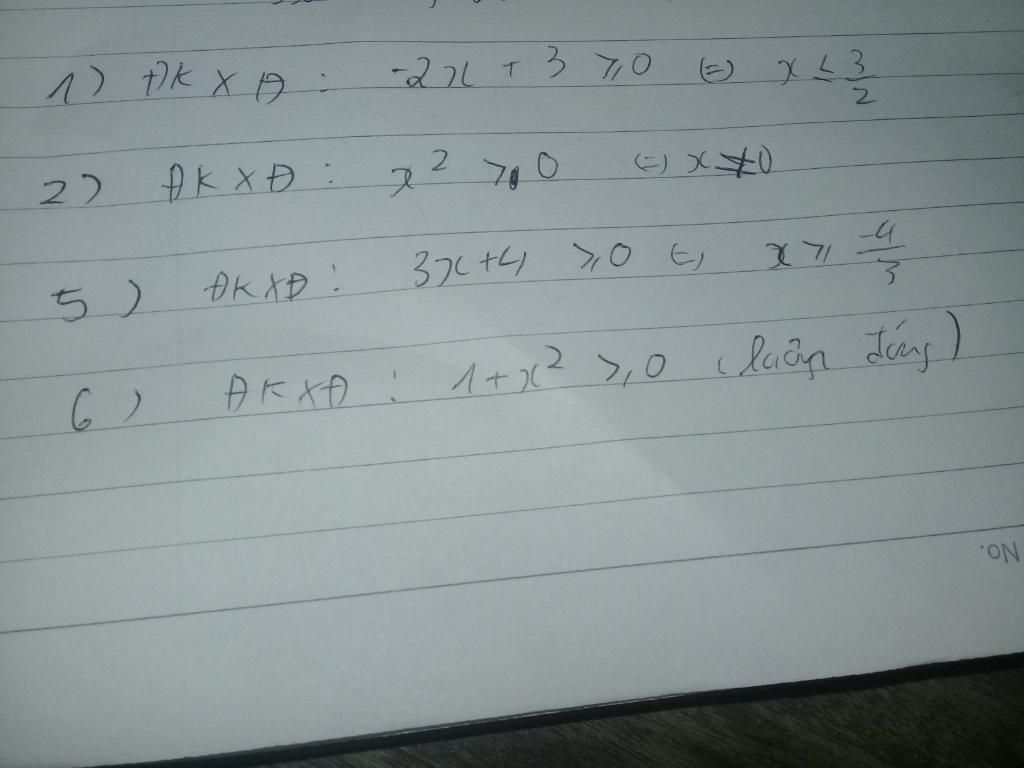 1) ĐKXĐ: -2x + 3 ≥ 0 (=) x ≤ 3/2
2) ĐKXĐ: x² ≥ 0 (=) x ≠ 0
5) ĐKXĐ: 3x+4 ≥ 0 (=) x ≥ -4/3
6) ĐKXĐ: 1+x² ≥ 0 (luôn đúng)
NO.